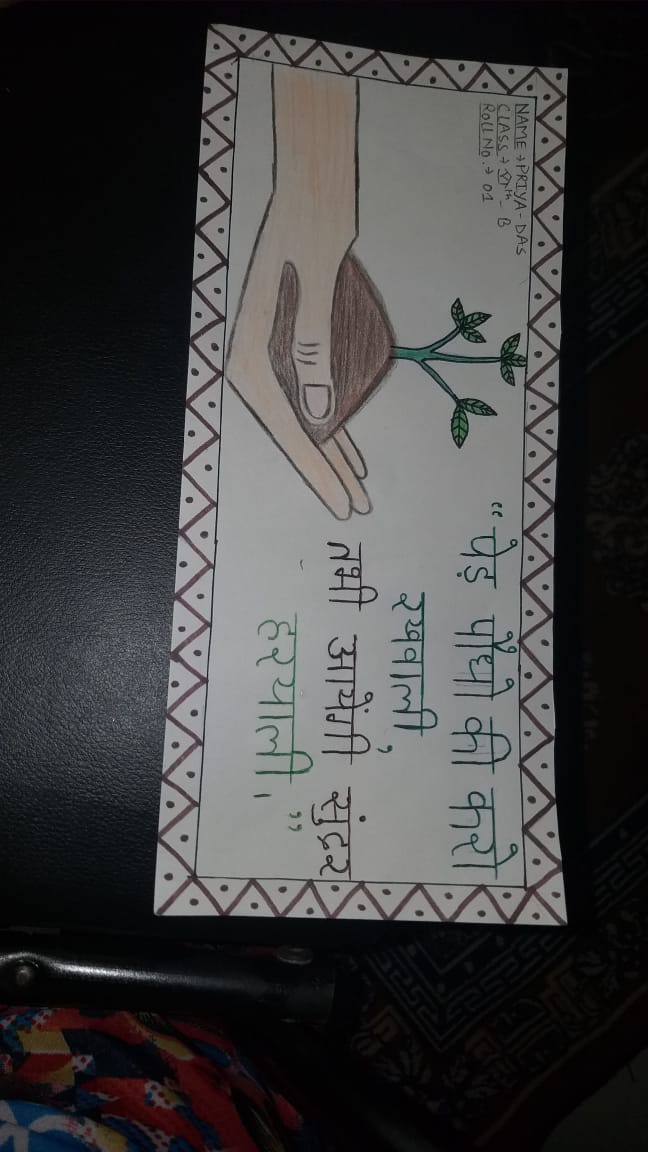 NAME → PRIYA - DAS
CLASS → - B
ROLL NO. → 01
“ पेड़ पौधों की करो
रखवाली,
तभी आयेगी सुंदर
हरयाली, ”